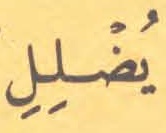 يُضْلِلِ